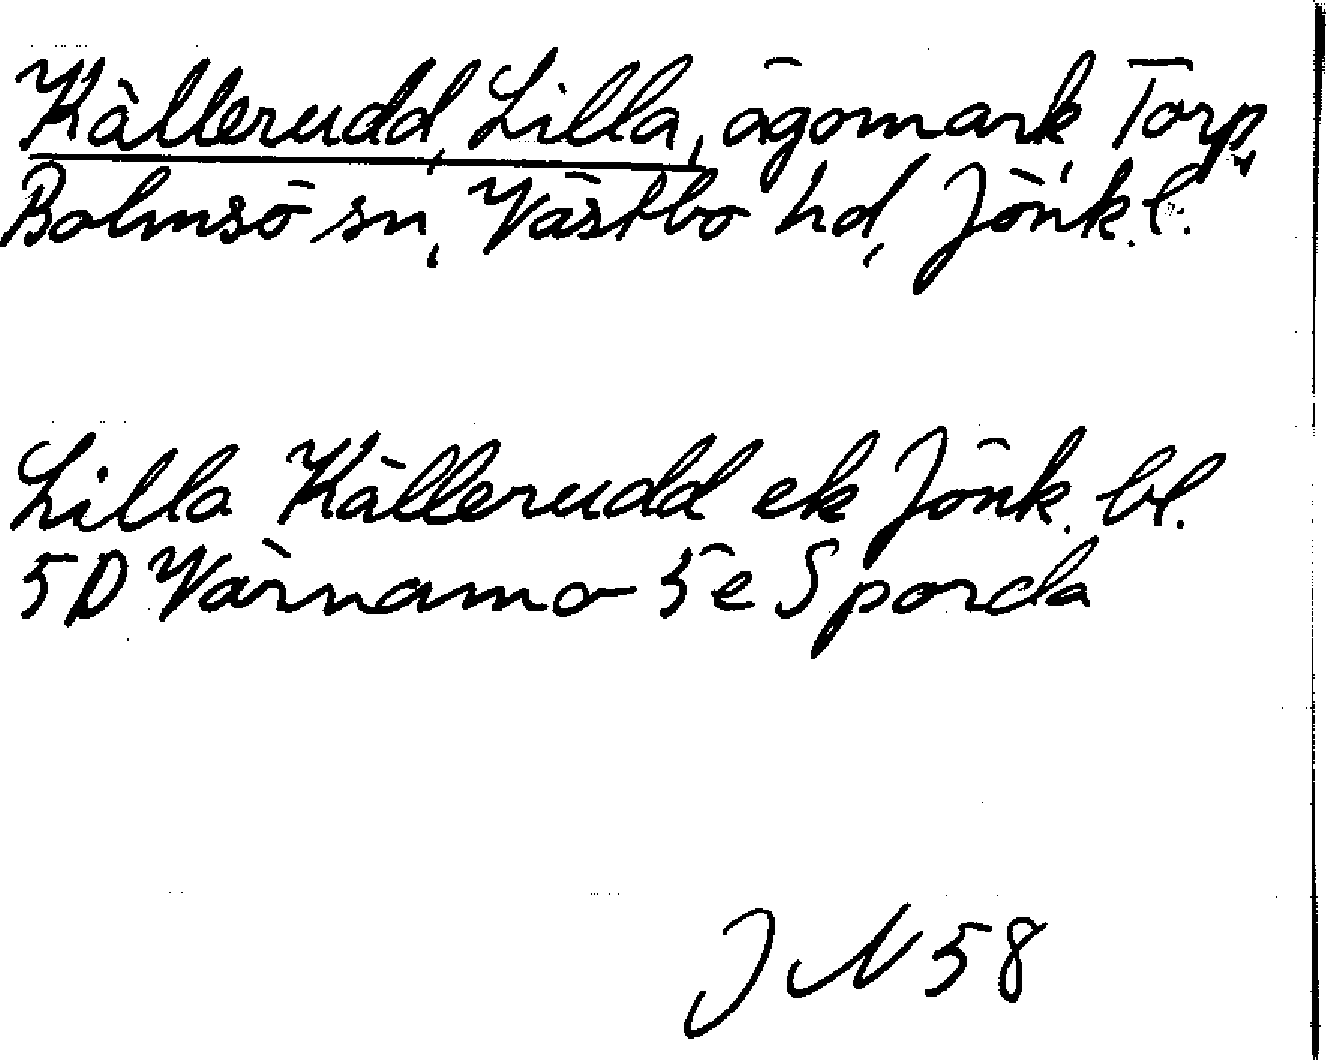 Källerudd, Lilla, ägomark, Torp,
Bolmsö sn, Västbo hd, Jönk.l.
Lilla Källerudd ek Jönk. bl.
5D Värnamo 5e Sporda
J N 58